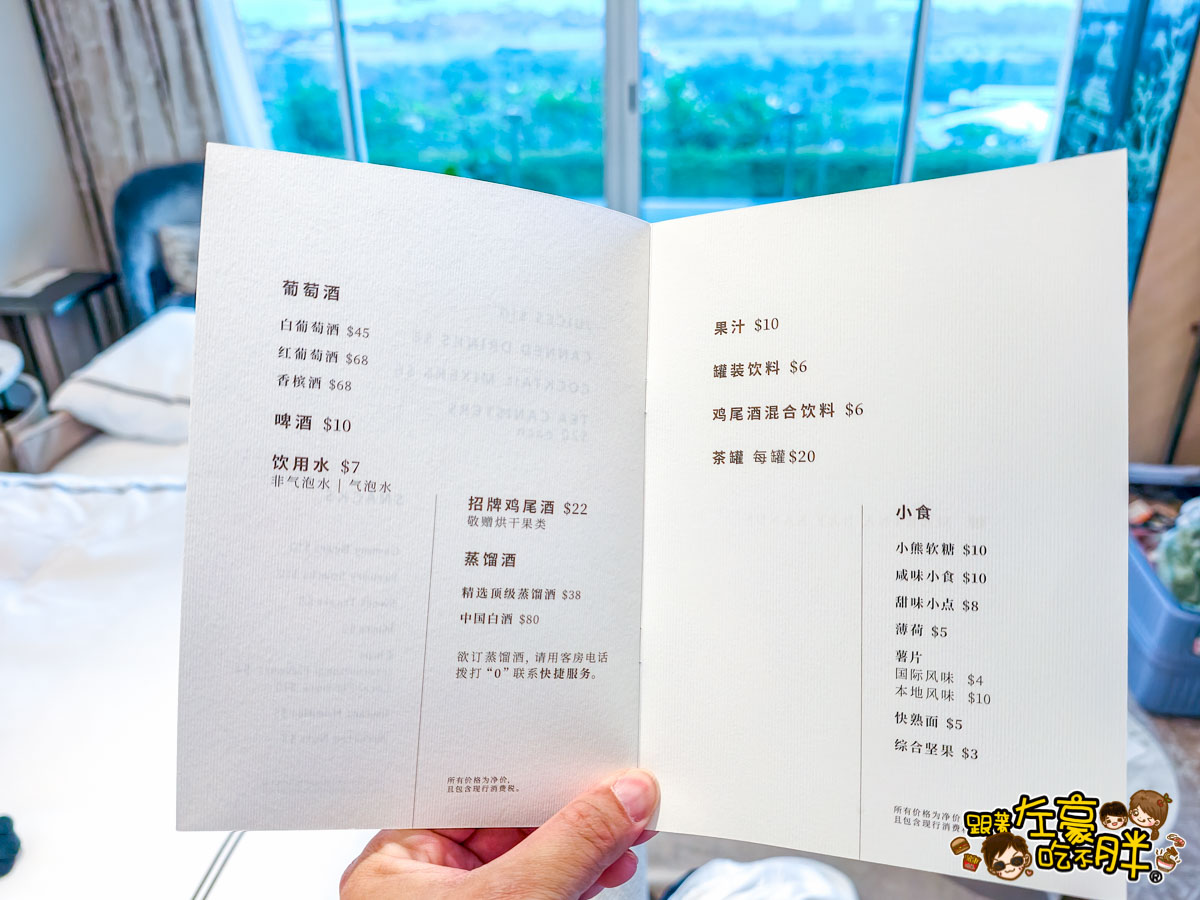 葡萄酒
白葡萄酒 $45
红葡萄酒 $68
香槟酒 $68
啤酒 $10
饮用水 $7
非气泡水 | 气泡水
招牌鸡尾酒 $22
敬赠烘干果类
蒸馏酒
精选顶级蒸馏酒 $38
中国白酒 $80
欲订蒸馏酒, 请用客房电话
拨打 “0” 联系快捷服务。
所有价格为净价,
且包含现行消费税。
果汁 $10
罐装饮料 $6
鸡尾酒混合饮料 $6
茶罐 每罐$20
小食
小熊软糖 $10
咸味小食 $10
甜味小点 $8
薄荷 $5
薯片
国际风味 $4
本地风味 $10
快熟面 $5
综合坚果 $3
所有价格为净价
且包含现行消费
跟著左豪吃不胖®